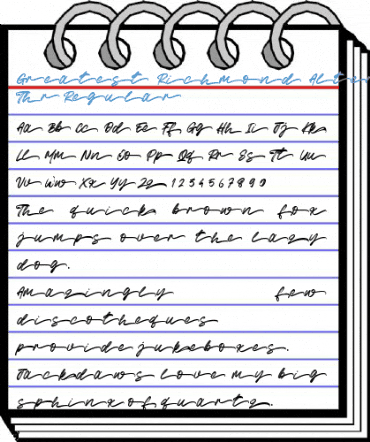 Greatest Richmond Alter
Thr Regular
Aa Bb Cc Dd Ee Ff Gg Hh Ii Jj Kk
Ll Mm Nn Oo Pp Qq Rr Ss Tt Uu
Vv Ww Xx Yy Zz 1234567890
The quick brown fox
jumps over the lazy
dog.
Amazingly few
discotheques
provide jukeboxes.
Jackdaws love my big
sphinx of quartz.